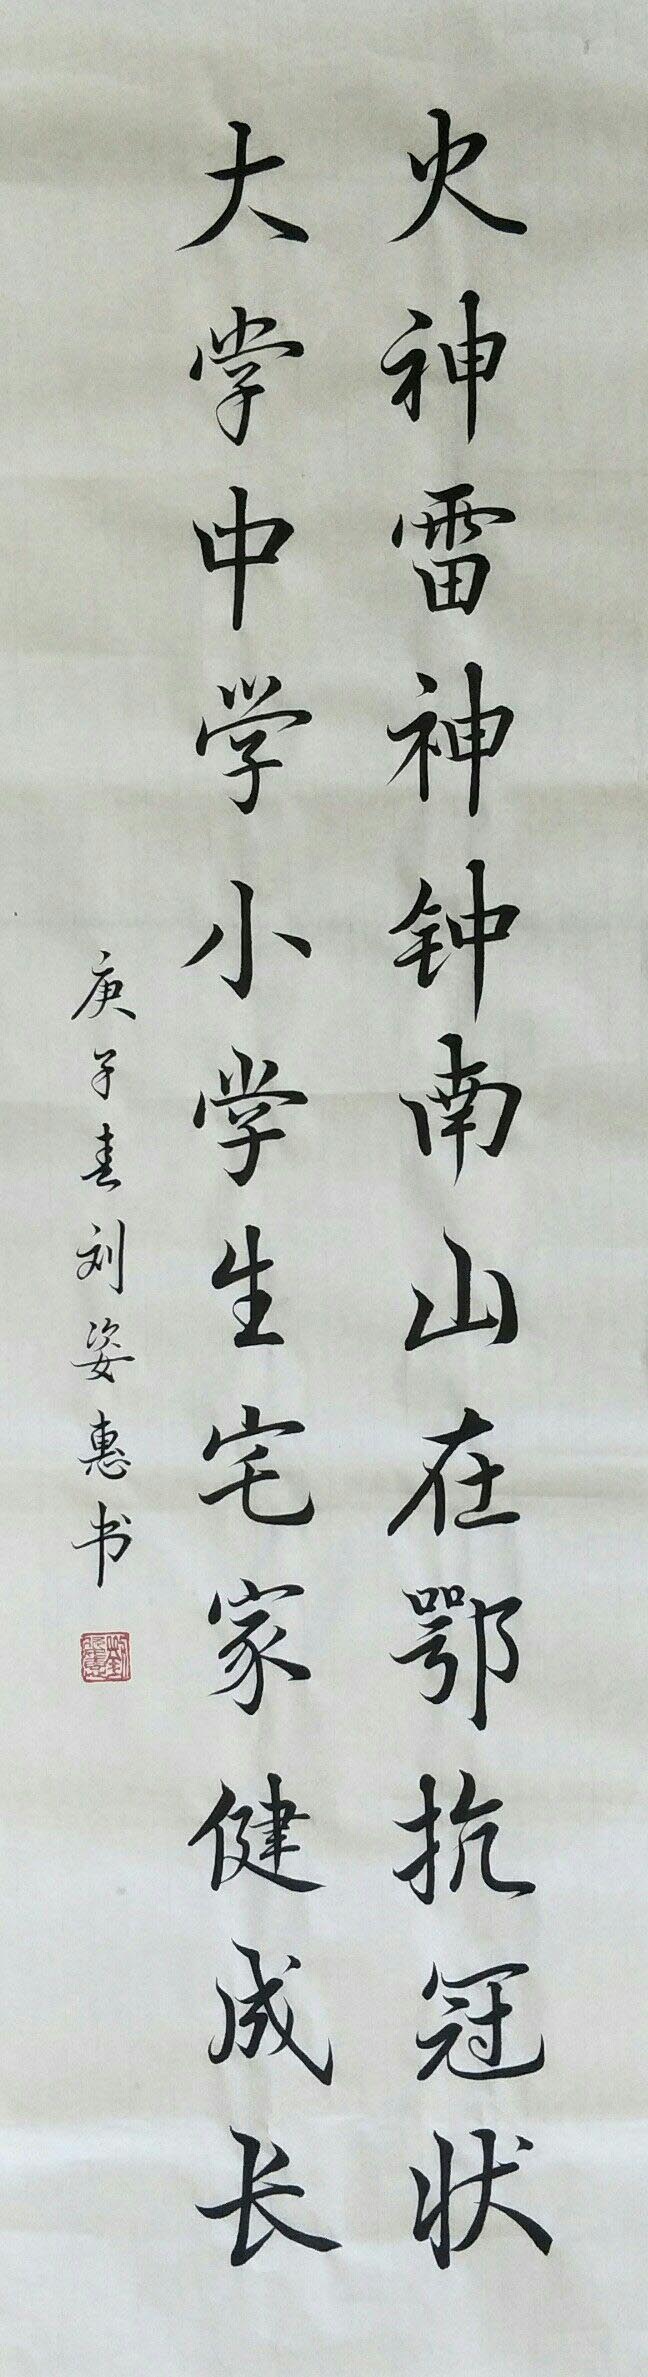 火神雷神钟南山在鄂抗冠状
大学中学小学生宅家健成长
庚子春刘姿惠书